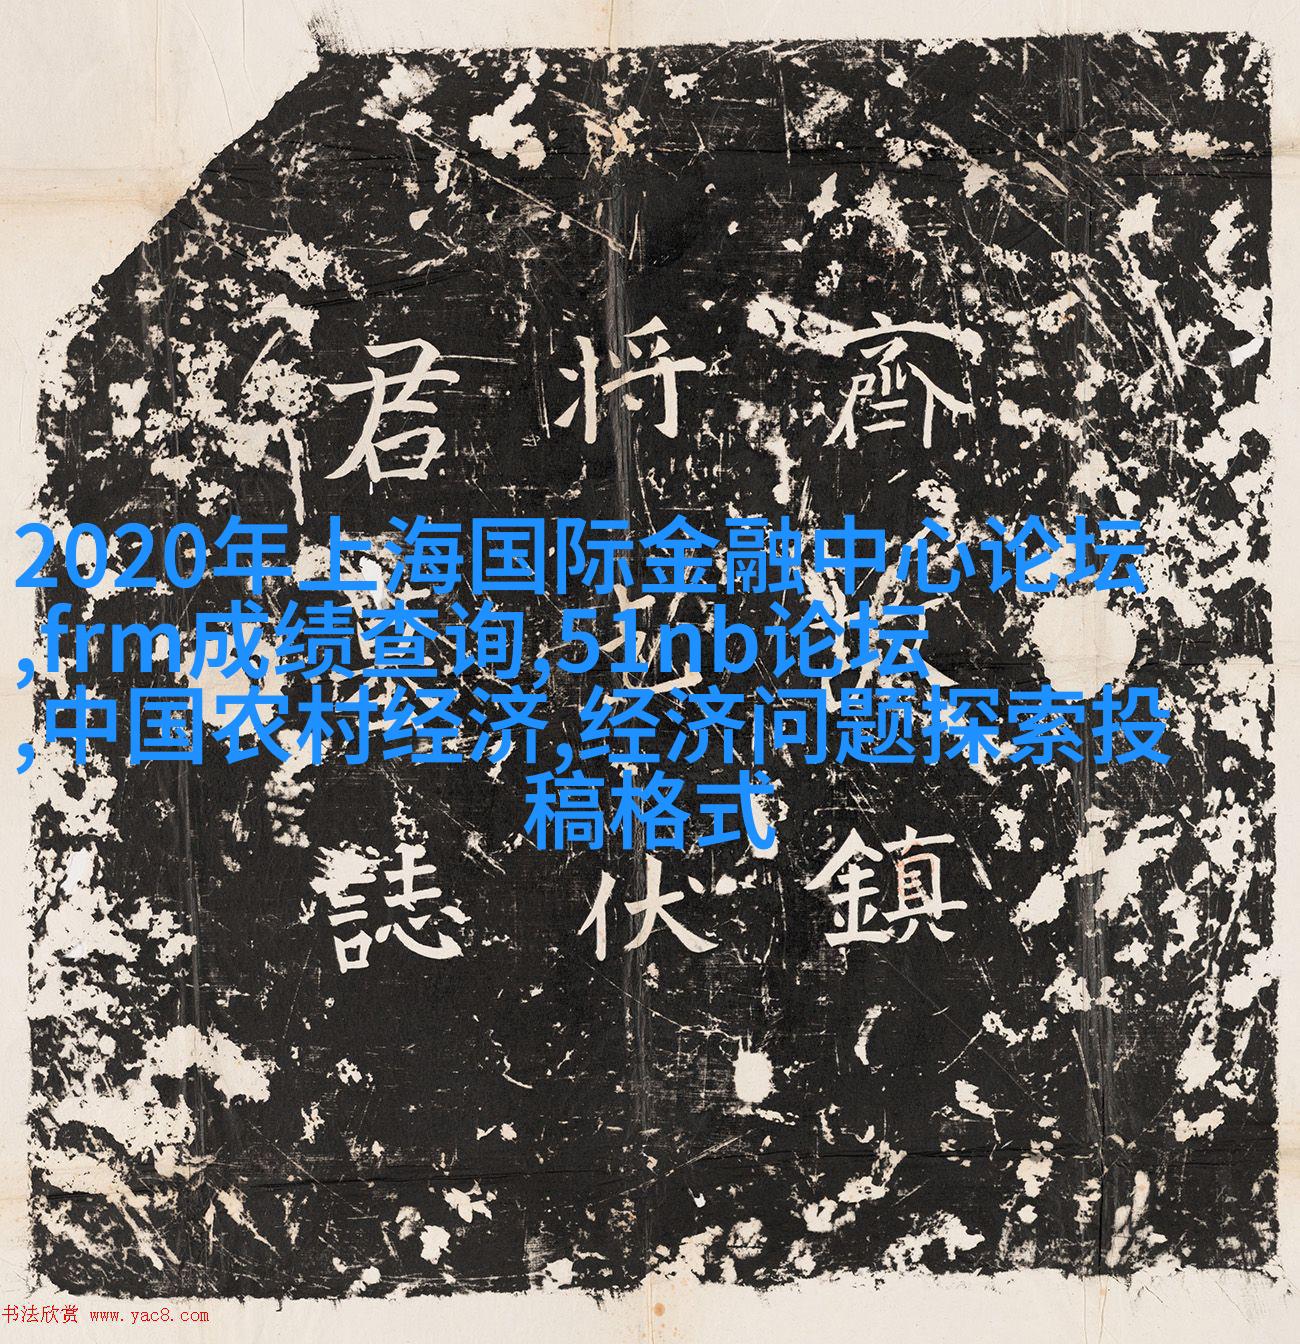 齊 鎮
将 伏
君 誌
2020年上海国际金融中心论坛
,frm成绩查询,51nb论坛
,中国农村经济,经济问题探索投
稿格式
书法欣赏 www.yac8.com